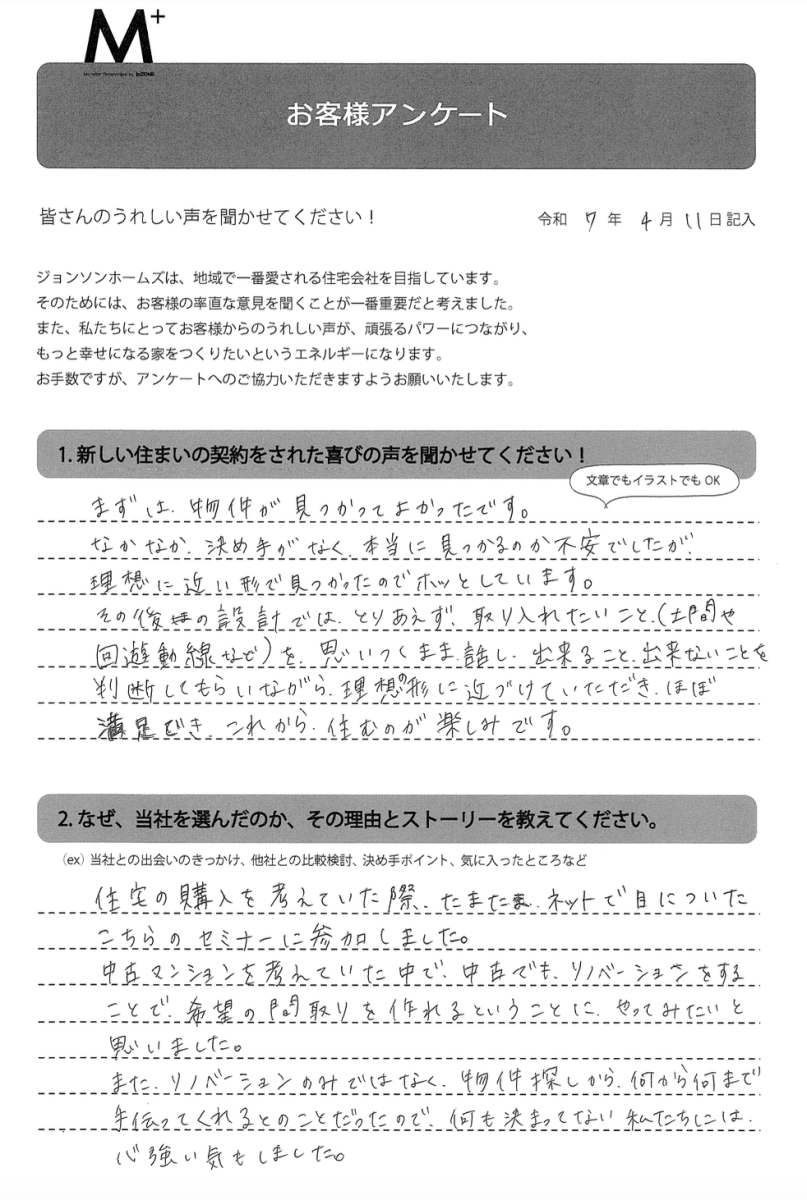 M+
お客様アンケート
皆さんのうれしい声を聞かせてください！
令和 7 年 4 月 11 日記入
ジョンソンホームズは、地域で一番愛される住宅会社を目指しています。
そのためには、お客様の率直な意見を聞くことが一番重要だと考えました。
また、私たちにとってお客様からのうれしい声が、頑張るパワーにつながり、
もっと幸せになる家をつくりたいというエネルギーになります。
お手数ですが、アンケートへのご協力いただきますようお願いいたします。
1. 新しい住まいの契約をされた喜びの声を聞かせてください！
文章でもイラストでも OK
まずは、物件が見つかってよかったです。
なかなか、決め手がなく、本当に見つかるのか不安でしたが、
理想に近い形で見つかったのでホッとしています。
その後の設計では、とりあえず、取り入れたいこと、(土間や
回遊動線など)を、思いつくまま、話し、出来ること、出来ないことを
判断してもらいながら、理想の形に近づけていただき、ほぼ
満足でき、これから、住むのが楽しみです。
2. なぜ、当社を選んだのか、その理由とストーリーを教えてください。
（ex）当社との出会いのきっかけ、他社との比較検討、決め手ポイント、気に入ったところなど
住宅の購入を考えていた際、たまたま、ネットで目についた
こちらのセミナーに参加しました。
中古マンションを考えていた中で、中古でも、リノベーションをする
ことで、希望の間取りを作れるということに、やってみたいと
思いました。
また、リノベーションのみではなく、物件探しから、何から何まで
手伝ってくれるとのことだったので、何も決まってない私たちには、
心強い気もしました。